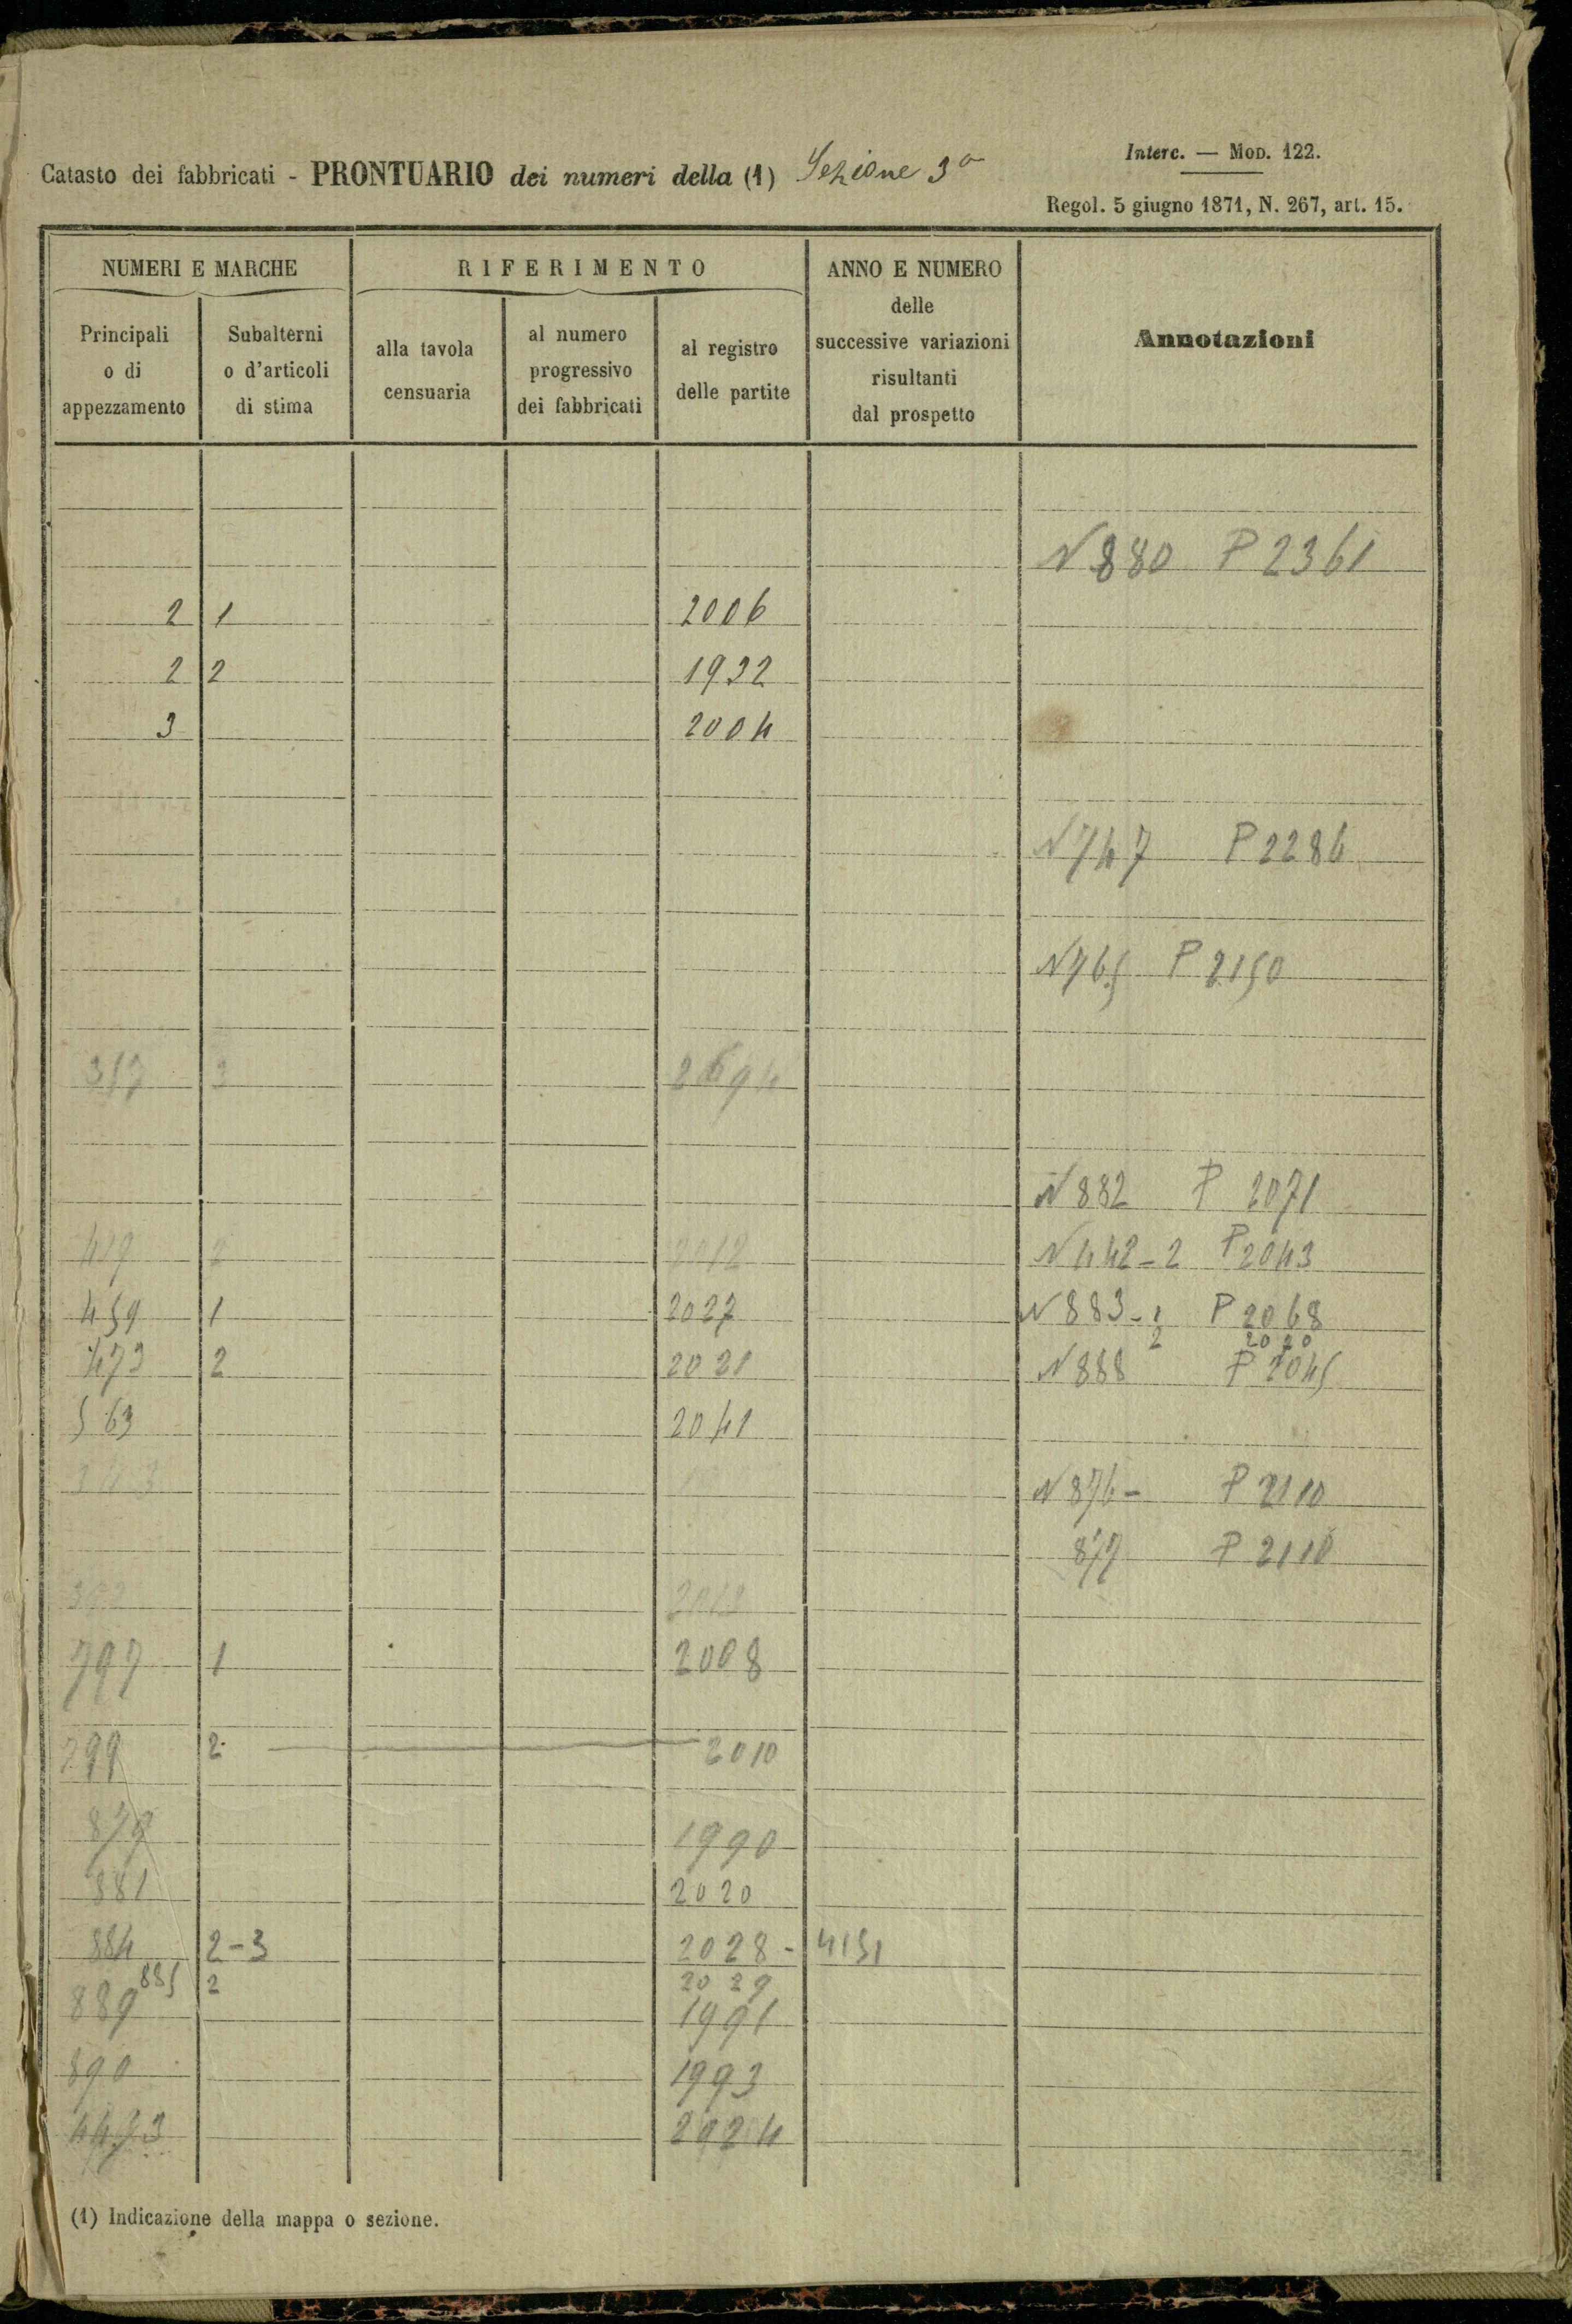 Interc. — Mod. 122.
Catasto dei fabbricati - PRONTUARIO dei numeri della (1) Sezione 3a
Regol. 5 giugno 1871, N. 267, art. 15.
NUMERI E MARCHE
RIFERIMENTO
ANNO E NUMERO
delle
successive variazioni
risultanti
dal prospetto
Annotazioni
Principali
o di
appezzamento
Subalterni
o d'articoli
di stima
alla tavola
censuaria
al numero
progressivo
dei fabbricati
al registro
delle partite
N 880 P 2361
2 1 2006
2 2 1932
3 2004
N 747 P 2286
N 765 P 2150
357 3
N 882 P 2071
419 2 2012 N 442-2 P 2043
459 1 2027 N 883-1 P 2068
2 2020
473 2 2021 N 888 P 2045
563 2041
N 876- P 2110
877 P 2110
2012
797 1 2008
799 2 2010
879 1990
881 2020
884 2-3 2028- 4151
885 2 2029
889 1991
890 1993
4473 2924
(1) Indicazione della mappa o sezione.